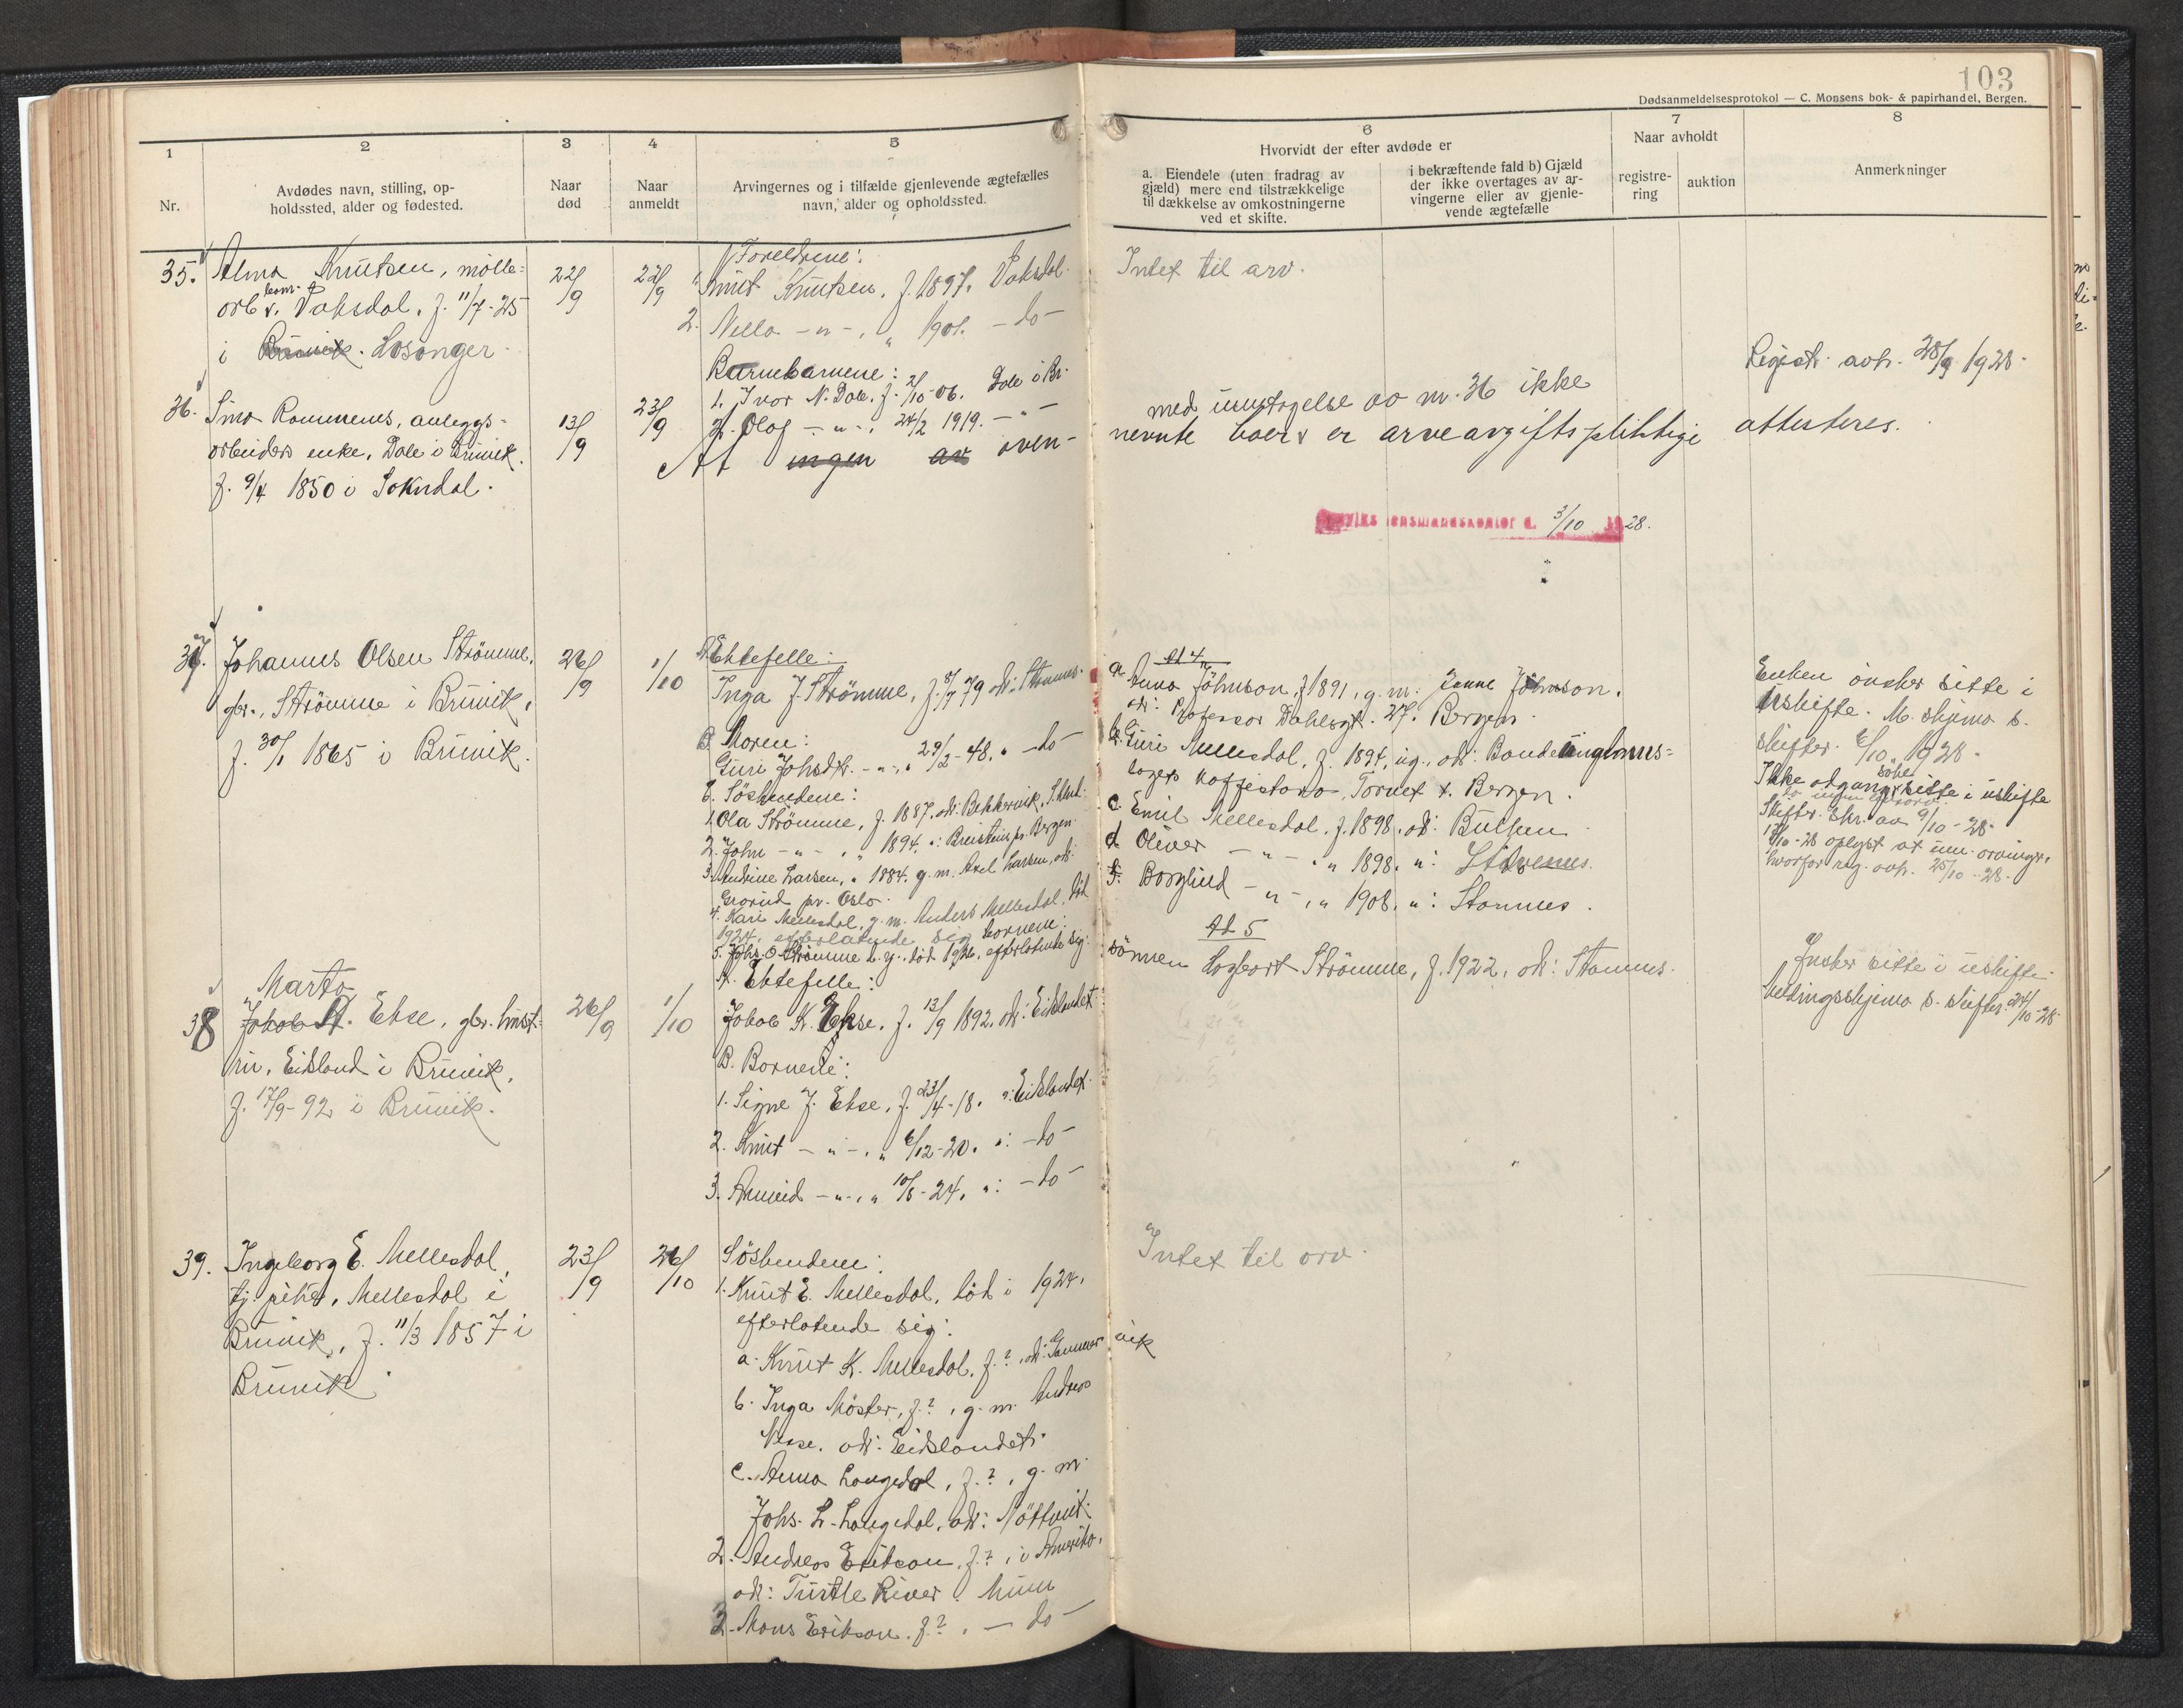 103
Dødsanmeldelsesprotokol — C. Monsens bok- & papirhandel, Bergen.
1
Nr.
2
Avdødes navn, stilling, op-
holdssted, alder og fødested.
3
Naar
død
4
Naar
anmeldt
5
Arvingernes og i tilfælde gjenlevende ægtefælles
navn, alder og opholdssted.
6
Hvorvidt der efter avdøde er
a. Eiendele (uten fradrag av
gjæld) mere end tilstrækkelige
til dækkelse av omkostningerne
ved et skifte.
i bekræftende fald b) Gjæld
der ikke overtages av ar-
vingerne eller av gjenle-
vende ægtefælle
7
Naar avholdt
registre-
ring
auktion
8
Anmerkninger
35. Alma Knutsen, mølle-
orb v. Vaksdal. f. 11/7-25
i Bruvik. Losonger.
22/9
22/9
Foreldrene:
1. Knut Knutsen, f. 1897. Vaksdal.
2. Nella - " - , " 1901. - do -
Intet til arv.
36. Sina Rommenes, anleggs-
arbeiders enke, Dale i Bruvik.
f. 9/4 1850 i Sokndal.
13/9
23/9
Barnebarnene:
1. Ivar N. Dale, f. 2/10-06. Dale i Br.
2. Olaf - " - , 24/2 1919. - " -
Regist. avh. 28/9 1928.
At ingen av oven-
med undtagelse av nr. 36 ikke
nevnte boer er arveavgiftspliktige attesteres.
viks lensmandskontor d. 3/10 1928.
37. Johannes Olsen Strömme,
gbr., Strömme i Bruvik,
f. 30/1 1865 i Bruvik.
26/9
1/10
A. Ektefelle:
Inga J. Strömme, f. 8/7 79 adr: Stamnes.
B. Moren:
Guri Johsdtr. - " - , " 29/2-48. " - do -
C. Söskendene:
1. Ola Strömme, f. 1887, adr: Bekkervik,
2. John - " - , " 1894. ": Breistein pr. Bergen.
3. Andrine Larsen, " 1884. g.m. Axel Larsen, adr:
Grorud pr. Oslo.
4. Kari Mellesdal, g.m. Anders Mellesdal, död
1924, efterlatende sig barnene:
5. Johs. O. Strömme d.y., död 1926, efterlatende sig:
Ad 4
a. Anna Johnson, f 1891, g.m. Johnson.
adr: Professor Dahlsgt. 27. Bergen.
b. Guri Mellesdal, f. 1894, ug., adr: Bondeungdoms-
lagets kaffistova, Torvet 4. Bergen.
c. Emil Mellesdal, f. 1898, adr:
d. Oliver - " - , " 1898. ":
f. Borghild - " - , " 1908. ": Stamnes.
Ad 5
sönnen Ingbart Strömme, f. 1922, adr: Stamnes.
Enken önsker sitte i
uskifte. M. skjema s.
skifter. 6/10 1928.
Ikke adgang söke sitte i uskifte
Skifter. skr. av 9/10-28.
17/10-28 oplyst at um. arvinger,
hvorfor reg. avh. 25/10-28.
38 Marta
Jakob A. Ekse, gbr. hust-
ru, Eidsland i Bruvik,
f. 17/9-92 i Bruvik.
26/9
1/10
A. Ektefelle:
Jakob K. Ekse, f. 13/9 1892, adr: Eidslandet.
B. Barnene:
1. Signe J. Ekse, f. 23/4-18. ": Eidslandet.
2. Knut - " - , " 6/12-20. ": - do -
3. Arnvid - " - , " 10/8-24. ": - do -
Önsker sitte i uskifte.
Meldingsskjema s. skifter. 24/10-28
39. Ingeborg E. Mellesdal,
tj. pike, Mellesdal i
Bruvik, f. 11/3 1857 i
Bruvik.
23/9
26/10
Söskendene:
1. Knut E. Mellesdal, död i 1924,
efterlatende sig:
a. Knut K. Mellesdal, f. ?, adr: Gammersvik
b. Inga Möster, f. ?, g.m. Andreas
Ekse, adr: Eidslandet.
c. Anna Langedal, f. ?, g.m.
Johs. L. Langedal, adr: Nöttveit.
2. Andreas Erikson, f. ?, i Amerika,
adr: Turtle River, Minn
3. Mons Erikson, f. ?, - do -
Intet til arv.